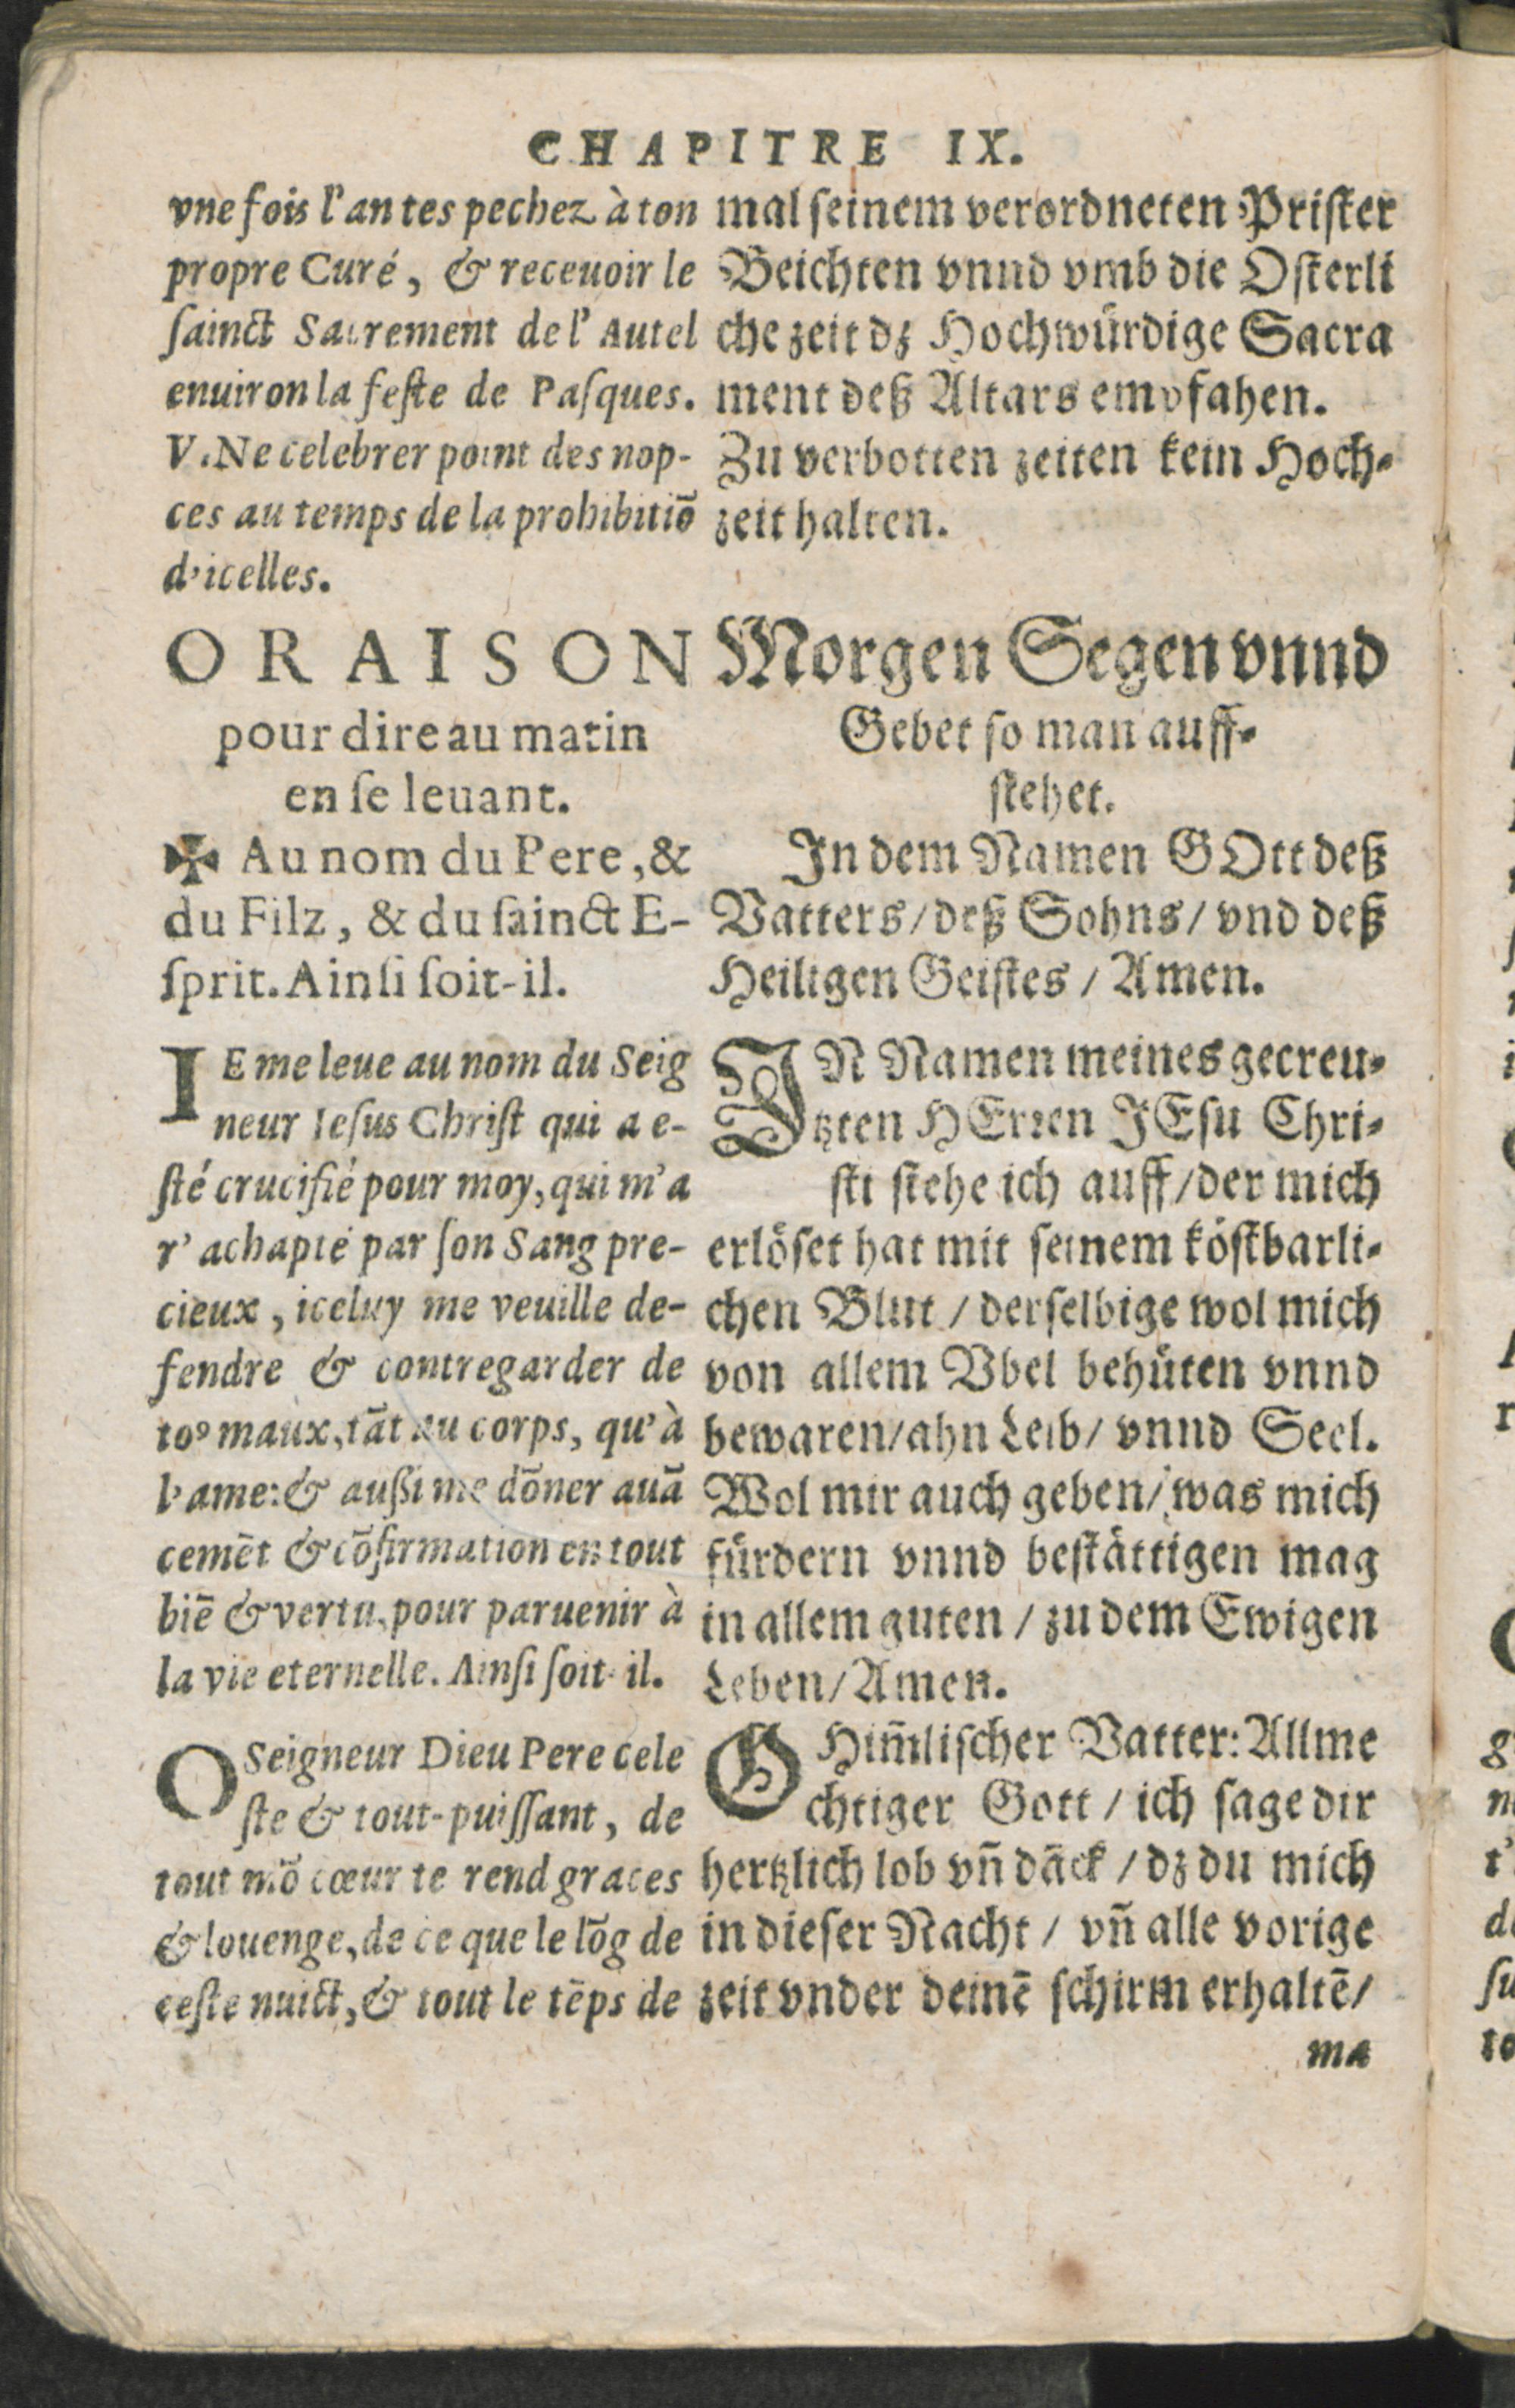 CHAPITRE IX.
vne fois l'an tes pechez à ton
propre Curé, & receuoir le
ſainct Sacrement de l'Autel
enuiron la feſte de Paſques.
V. Ne celebrer point des nop-
ces au temps de la prohibitiō
d'icelles.
ORAISON
pour dire au matin
en ſe leuant.
✠ Au nom du Pere, &
du Filz, & du ſainct E-
ſprit. Ainſi ſoit-il.
IE me leue au nom du Seig
neur Ieſus Chriſt qui a e-
ſté crucifié pour moy, qui m'a
r'achapté par ſon Sang pre-
cieux, iceluy me veuille de-
fendre & contregarder de
toꝰ maux, tāt au corps, qu'à
l'ame: & auſsi me dōner auā
cemēt & cōfirmation en tout
biē & vertu, pour paruenir à
la vie eternelle. Ainſi ſoit-il.
O Seigneur Dieu Pere cele
ſte & tout-puiſſant, de
tout mō cœur te rend graces
& louenge, de ce que le lōg de
ceſte nuict, & tout le tēps de
mal ſeinem verordneten Priſter
Beichten vnnd vmb die Oſterli
che zeit dz Hochwürdige Sacra
ment deß Altars empfahen.
Zu verbotten zeiten kein Hoch-
zeit halten.
Morgen Segen vnnd
Gebet ſo man auff-
ſtehet.
In dem Namen GOtt deß
Vatters/ deß Sohns/ vnd deß
Heiligen Geiſtes / Amen.
IN Namen meines gecreu-
tzten HErꝛen JEſu Chri-
ſti ſtehe ich auff/ der mich
erlöſet hat mit ſeinem köſtbarli-
chen Blut / derſelbige wol mich
von allem Vbel behüten vnnd
bewaren/ ahn Leib/ vnnd Seel.
Wol mir auch geben/ was mich
fürdern vnnd beſtättigen mag
in allem guten / zu dem Ewigen
Leben/ Amen.
O Him̄liſcher Vatter: Allme
chtiger Gott / ich ſage dir
hertzlich lob vn̄ dāck / dz du mich
in dieſer Nacht / vn̄ alle vorige
zeit vnder deinē ſchirm erhaltē/
ma